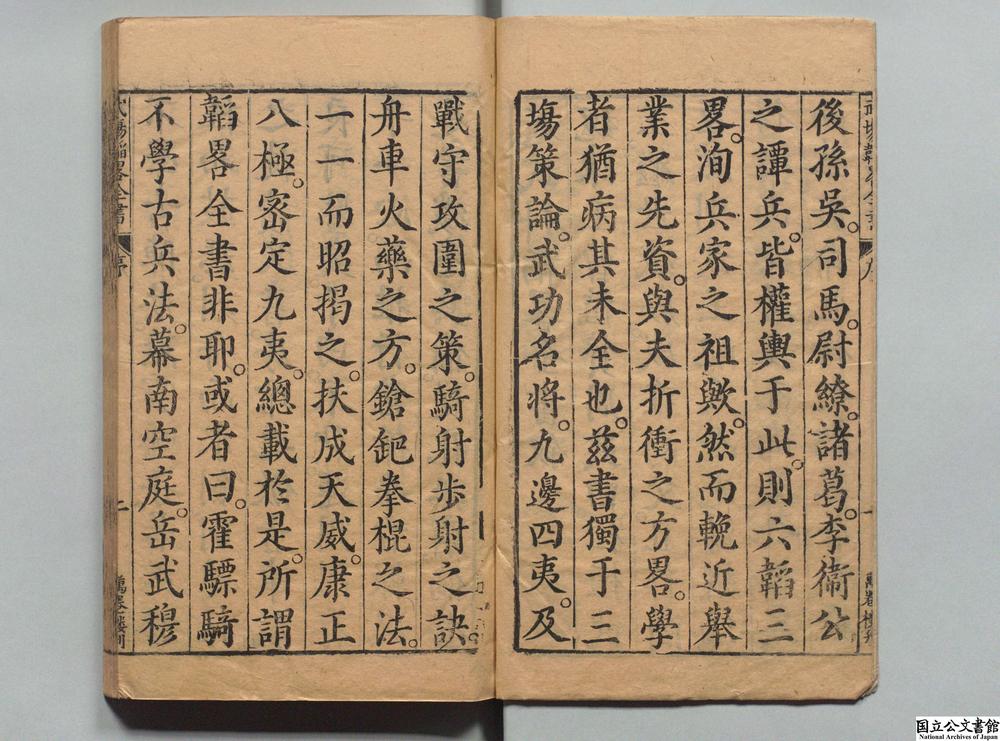 後孫吳。司馬。尉繚。諸葛。李衛公
之譚兵。皆權輿于此。則六韜三
畧。洵兵家之祖歟。然而輓近舉
業之先資。與夫折衝之方畧。學
者猶病其未全也。茲書獨于三
塲策論。武功名將。九邊四夷。及
戰守攻圍之策。騎射步射之訣。
舟車火藥之方。鎗鈀拳棍之法。
一一而昭揭之。扶成天威。康正
八極。宻定九夷。總載於是。所謂
韜畧全書非耶。或者曰。霍驃騎
不學古兵法。幕南空庭。岳武穆
国立公文書館
National Archives of Japan